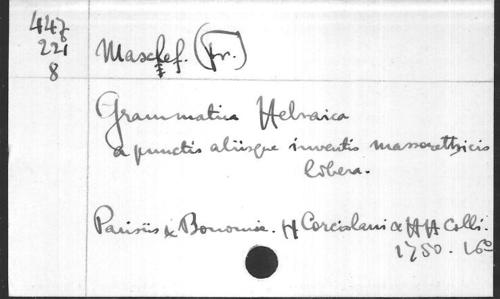 447
221
8
Masclef. (Fr.)
Grammatica Hebraica
a punctis aliisque inventis massorethicis
libera.
Parisiis & Bononiae.
1750. 16º